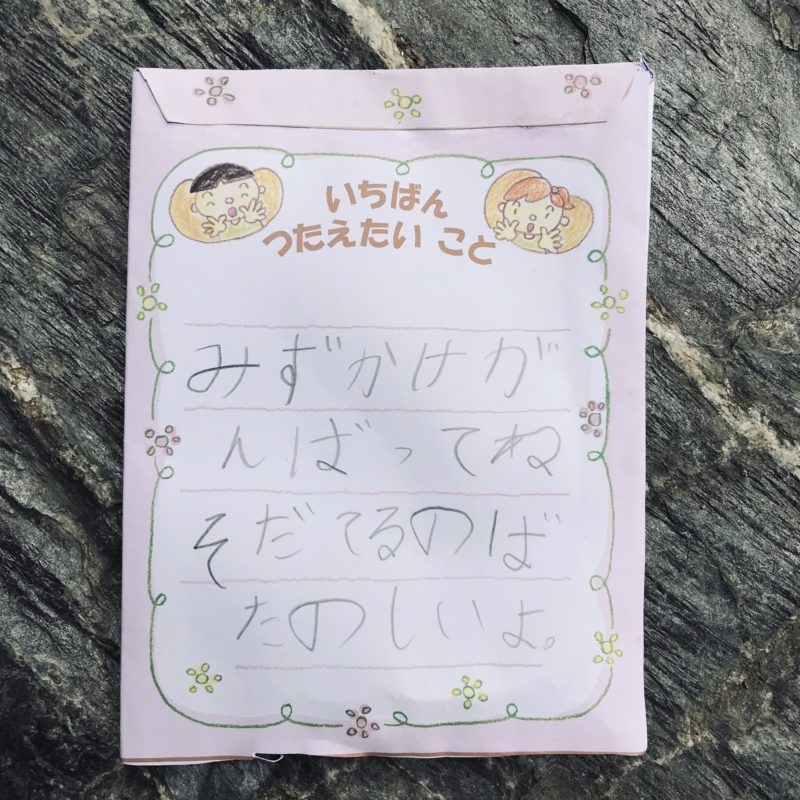 いちばん
つたえたい こと
みずかけが
んばってね
そだてるのば
たのしいよ。